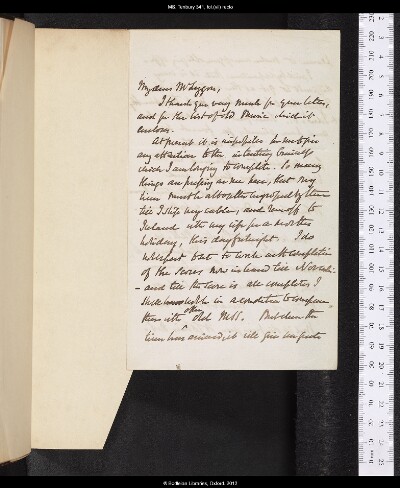 MS. Tenbury 341, fol. (vii) recto
My dear Mr Lygon,
I thank you very much for your letter,
and for the list of old Music which it
encloses.
At present it is impossible for me to give
any attention to the interesting
which I am longing to complete. So many
things are pressing on me here, that my
time must be altogether engrossed by them
till I slip my cable, and run off to
Ireland with my wife for a months
holiday, this day fortnight. I do
not expect but to work at completion
of the Scores now in hand till
- and till the Score is all complete, I
shall be in a condition to compare
them with other old MSS. But when the
time has arrived, it will give me
© Bodleian Libraries, Oxford, 2012